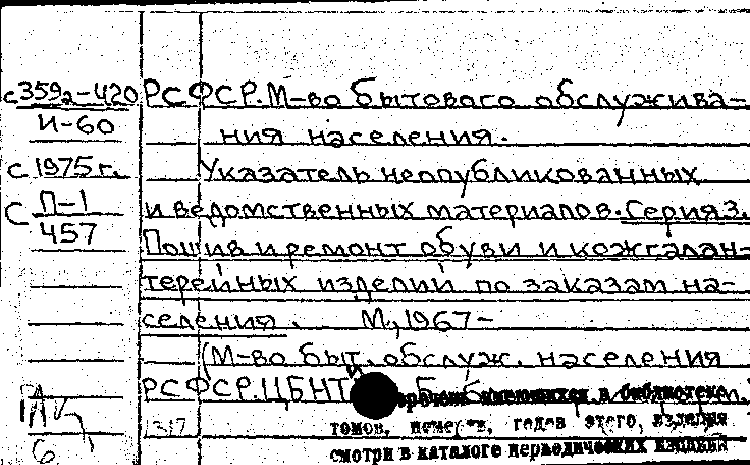 с359а-420
И-60
с 1975 г.
с П-1
457
РСФСР. М-во бытового обслужива-
ния населения.
Указатель неопубликованных
и ведомственных материалов. Серия 3.
Пошив и ремонт обуви и кожгалан-
терейных изделий по заказам на-
селения. М., 1967-
(М-во быт. обслуж. населения
РСФСР. ЦБНТИ
имеющихся в библиотеке
томов, годов этого издания
смотри в каталоге периодических изданий
1317